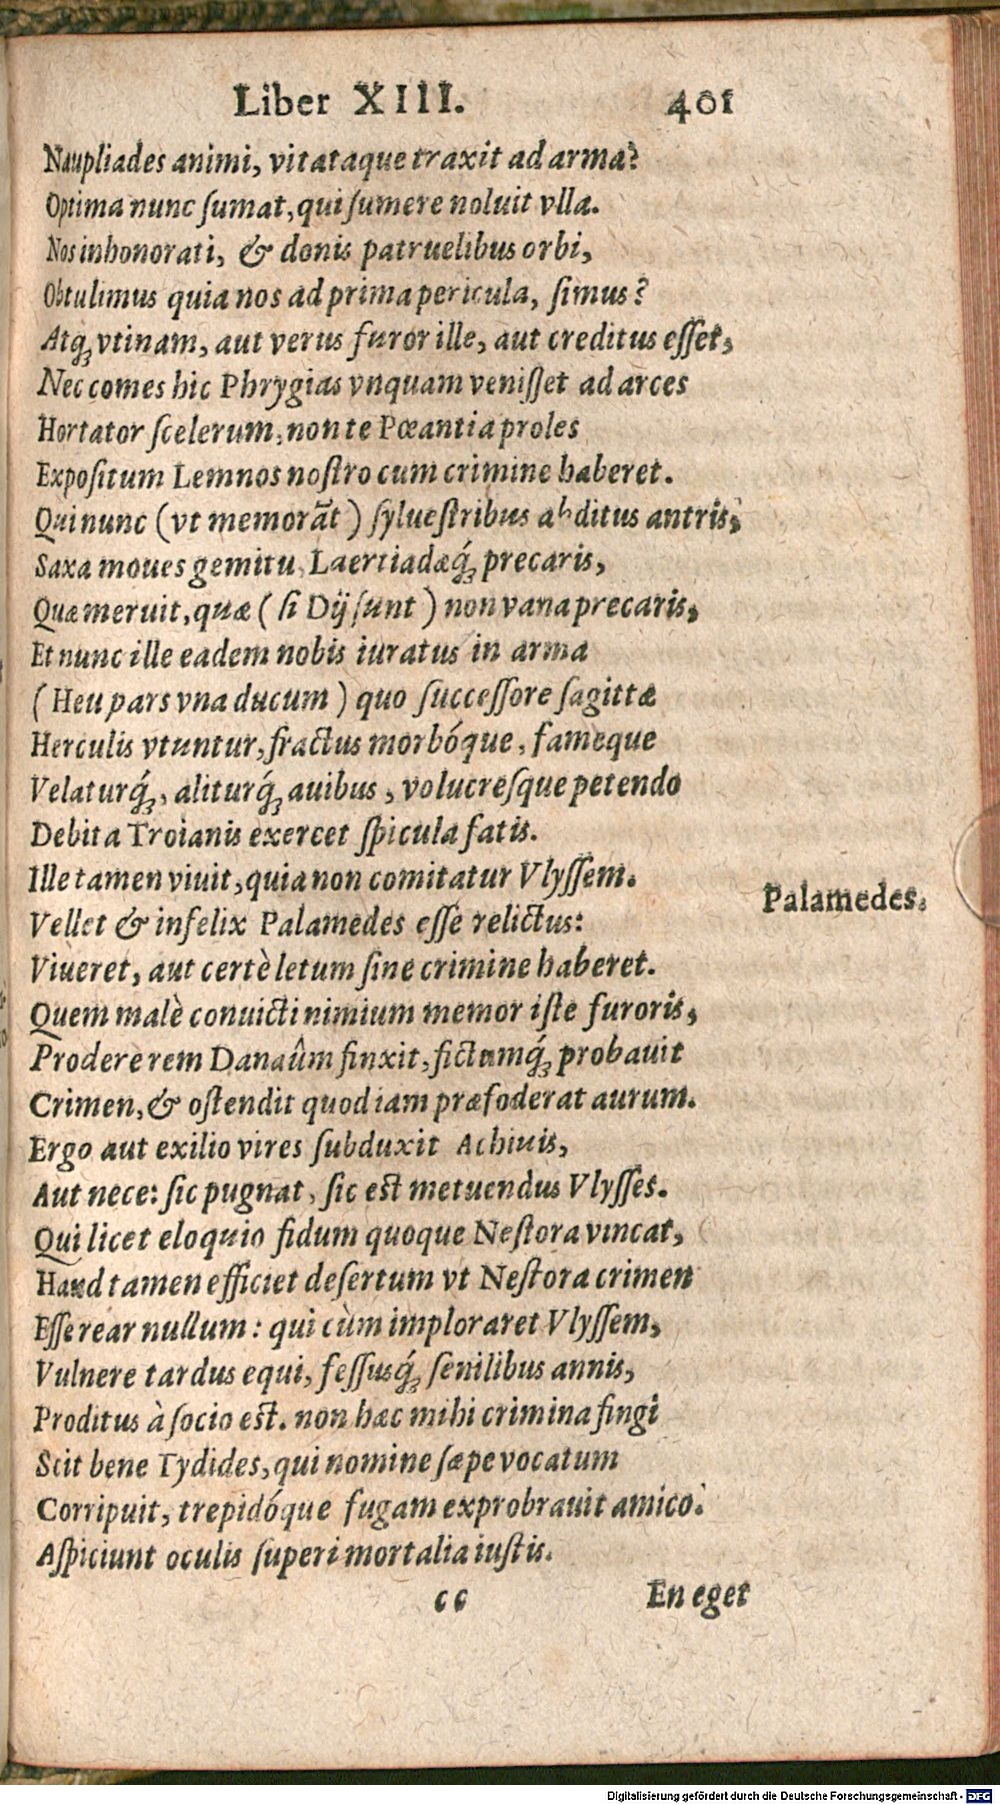 Liber XIII. 401
Naupliades animi, vitataque traxit ad arma?
Optima nunc ſumat, qui ſumere noluit vlla.
Nos inhonorati, & donis patruelibus orbi,
Obtulimus quia nos ad prima pericula, ſimus?
Atq́ꝫ vtinam, aut verus furor ille, aut creditus eſſet,
Nec comes hic Phrygias vnquam veniſſet ad arces
Hortator ſcelerum, non te Pœantia proles
Expoſitum Lemnos noſtro cum crimine haberet.
Qui nunc (vt memorāt) ſylueſtribus abditus antris,
Saxa moues gemitu, Laertiadæq́ꝫ precaris,
Quæ meruit, quæ (ſi Dij ſunt) non vana precaris,
Et nunc ille eadem nobis iuratus in arma
(Heu pars vna ducum) quo ſucceſſore ſagittæ
Herculis vtuntur, fractus morbóque, fameque
Velaturq́ꝫ, aliturq́ꝫ auibus, volucreſque petendo
Debita Troianis exercet ſpicula fatis.
Ille tamen viuit, quia non comitatur Vlyſſem.
Palamedes.
Vellet & infelix Palamedes eſſe relictus:
Viueret, aut certè letum ſine crimine haberet.
Quem malè conuicti nimium memor iſte furoris,
Prodere rem Danaûm finxit, fictumq́ꝫ probauit
Crimen, & oſtendit quod iam præfoderat aurum.
Ergo aut exilio vires ſubduxit Achiuis,
Aut nece: ſic pugnat, ſic eſt metuendus Vlyſſes.
Qui licet eloquio fidum quoque Neſtora vincat,
Haud tamen efficiet deſertum vt Neſtora crimen
Eſſe rear nullum: qui cùm imploraret Vlyſſem,
Vulnere tardus equi, feſſusq́ꝫ ſenilibus annis,
Proditus à ſocio eſt. non hæc mihi crimina fingi
Scit bene Tydides, qui nomine ſæpe vocatum
Corripuit, trepidóque fugam exprobrauit amico.
Aſpiciunt oculis ſuperi mortalia iuſtis.
cc En eget
Digitalisierung gefördert durch die Deutsche Forschungsgemeinschaft - DFG